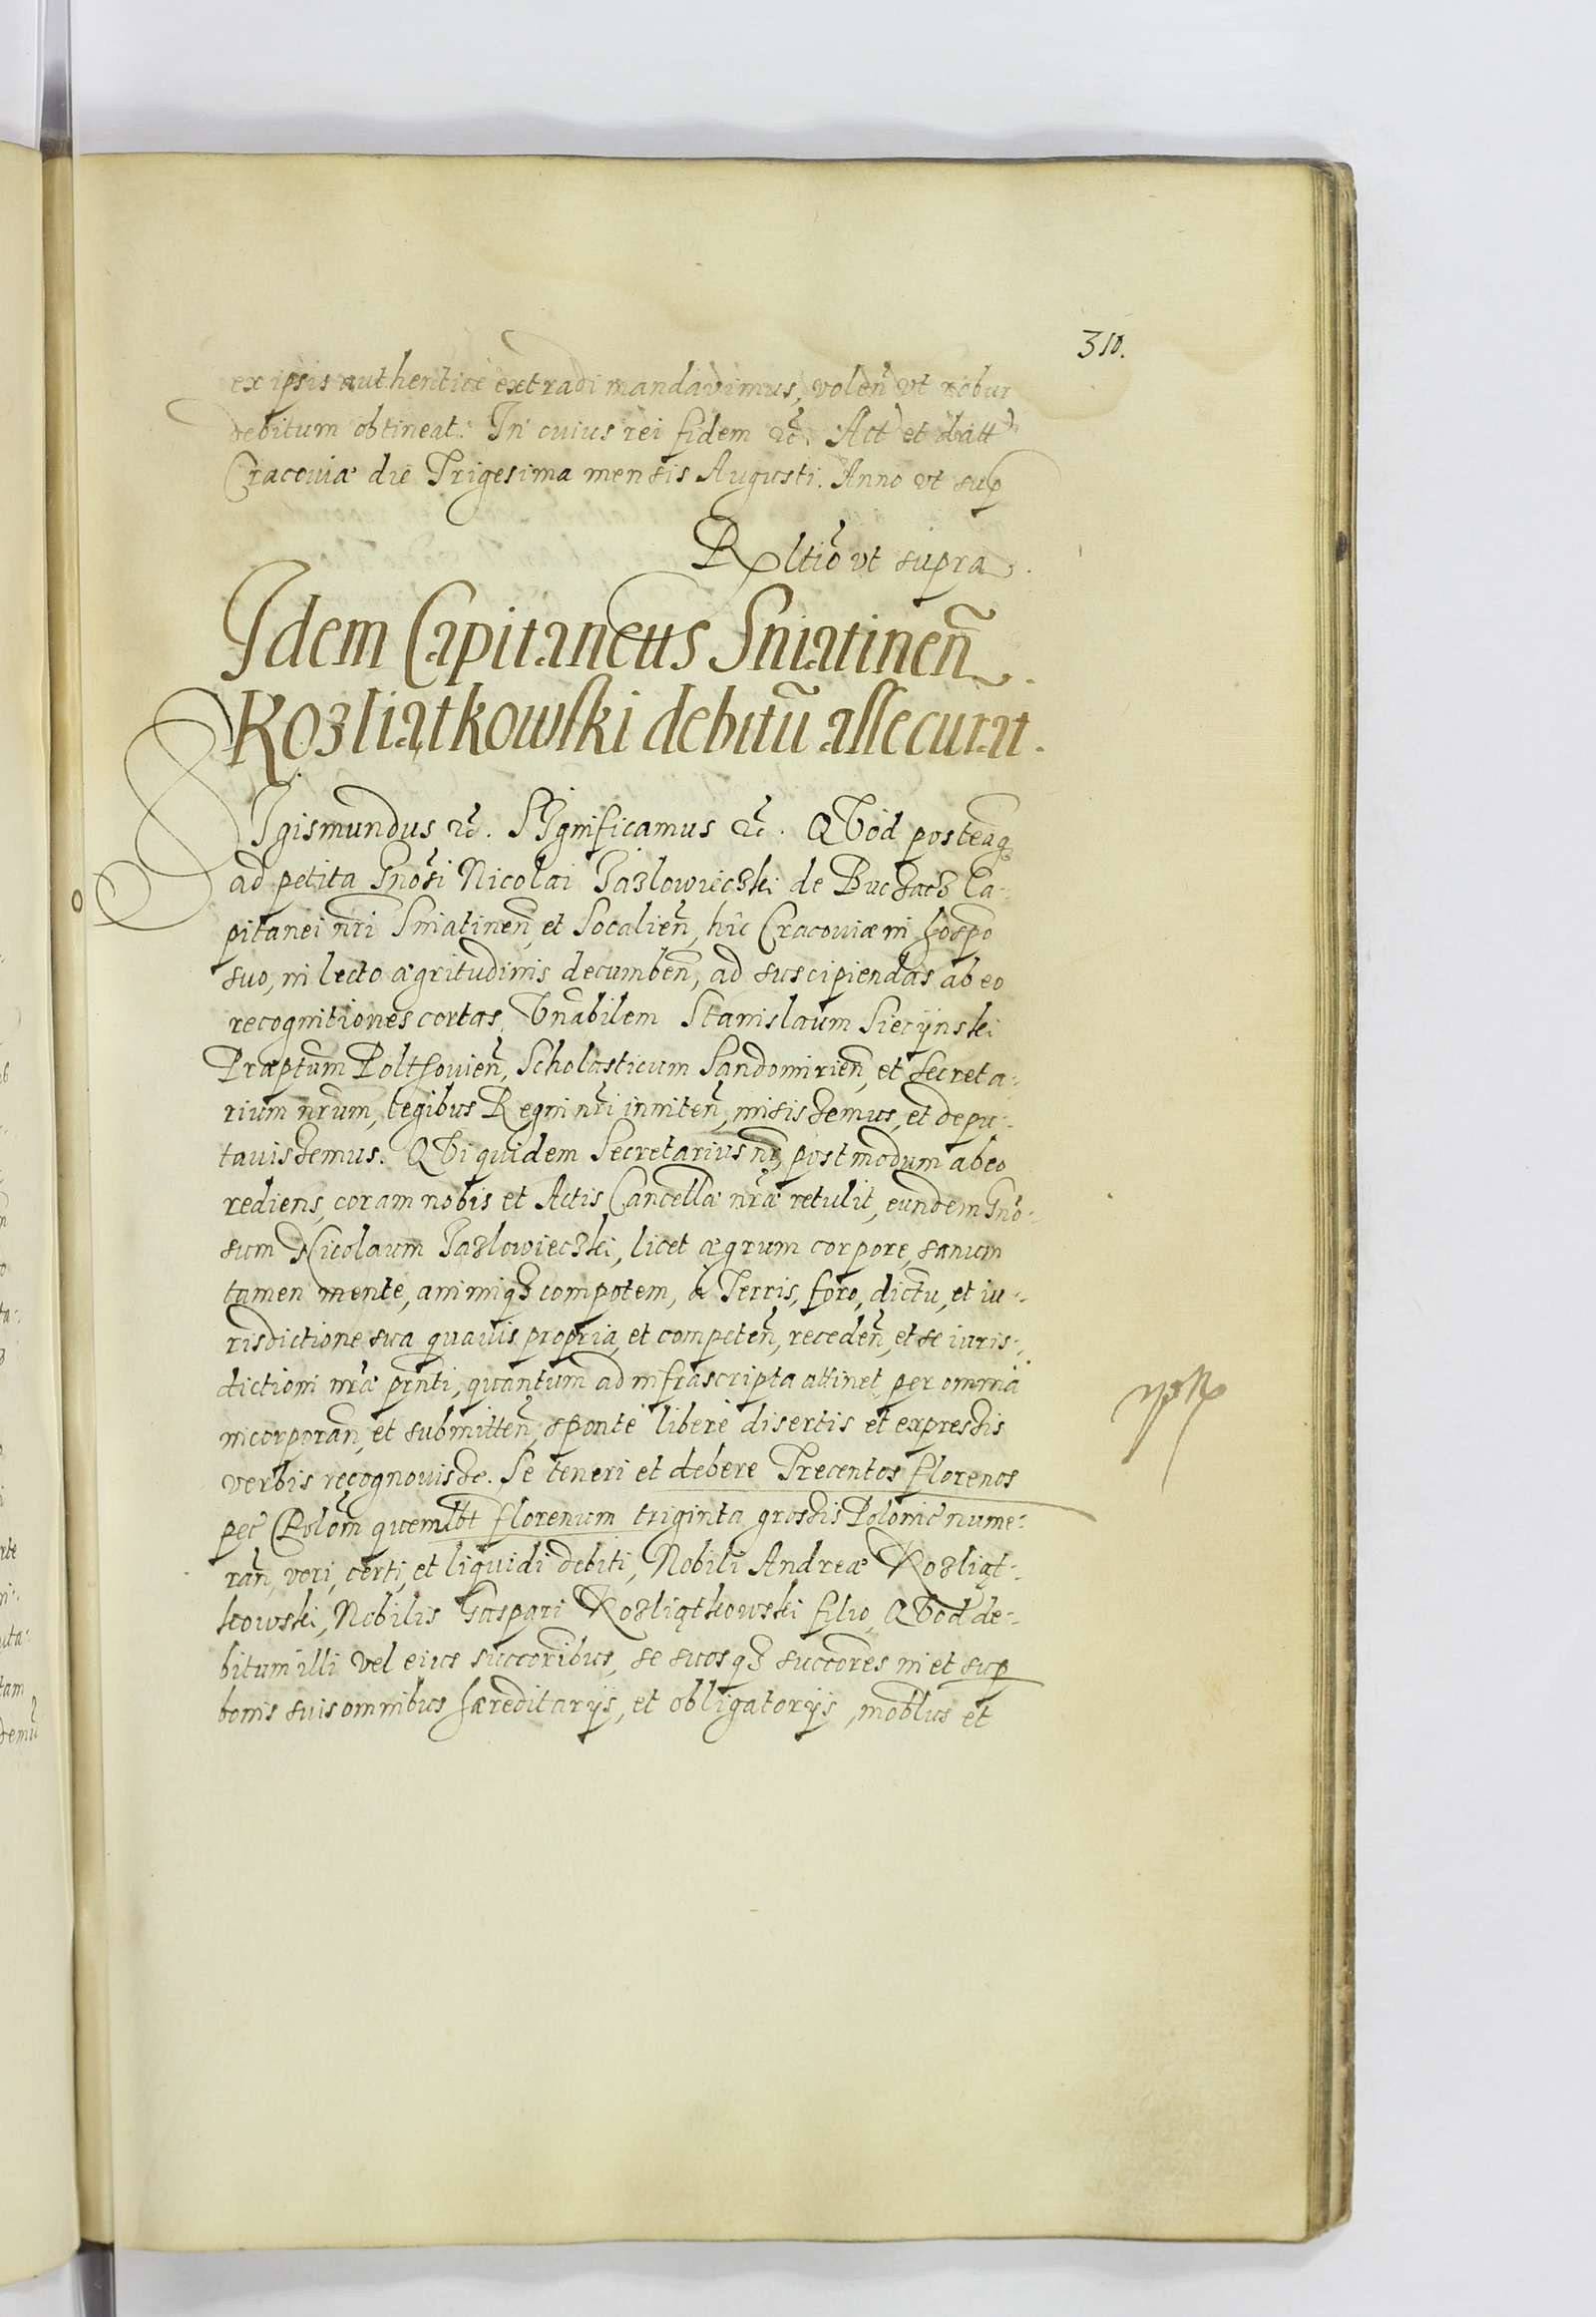 310.
ex ipsis authentice extradi mandavimus, volen̄ vt robur
debitum obtineat. In cuius rei fidem &c. Act et datt
Cracoviæ die Trigesima mensis Augusti. Anno vt sup
Rltiō vt supra.
Idem Capitaneus Sniatinen̄.
Kozliatkowski debitū assecurat.
SIgismundus &c. SIgnificamus &c. QVod posteaq̃
ad petita Gnōsi Nicolai Jazlowieczki de Buczacz Ca-
pitanei nr̄i Sniatinen̄, et Socalien̄, hic Cracoviæ in hospō
suo, in lecto ægritudinis decumben̄, ad suscipiendas ab eo
recognitiones certas, Vn̄abilem Stanislaum Siecijnski
Præptum Polthovien̄, Scholasticum Sandomirien̄, et Secreta-
rium nr̄um, legibus Regni nr̄i inniten̄, misissemus, et depu-
tavissemus. QVi quidem Secretarius nr̄ postmodum ab eo
rediens, coram nobis et Actis Cancellæ nr̄æ retulit, eundem Gnō-
sum Nicolaum Jazlowieczki, licet ægrum corpore, sanum
tamen mente, animiqȝ compotem, à Terris, foro, dictu, et iu-
risdictione sua quavis propria, et competen̄, receden̄, et se iuris-
dictioni nr̄æ pr̄nti, quantum ad infrascripta attinet per omnia
incorporan̄, et submitten̄, sponte libere disertis et expressis
verbis recognovisse. Se teneri et debere Trecentos florenos
pec̄ Polōn quemlbt florenum triginta grossis Polonic̄ nume-
ran̄, veri, certi, et liquidi debiti, Nobili Andreæ Kozliąt-
kowski, Nobilis Gaspari Kozliątkowski filio, QVod de-
bitum illi vel eius succōribus, se suosqȝ succōres in et sup
bonis suis omnibus hæreditarijs, et obligatorijs, mobl̄us et